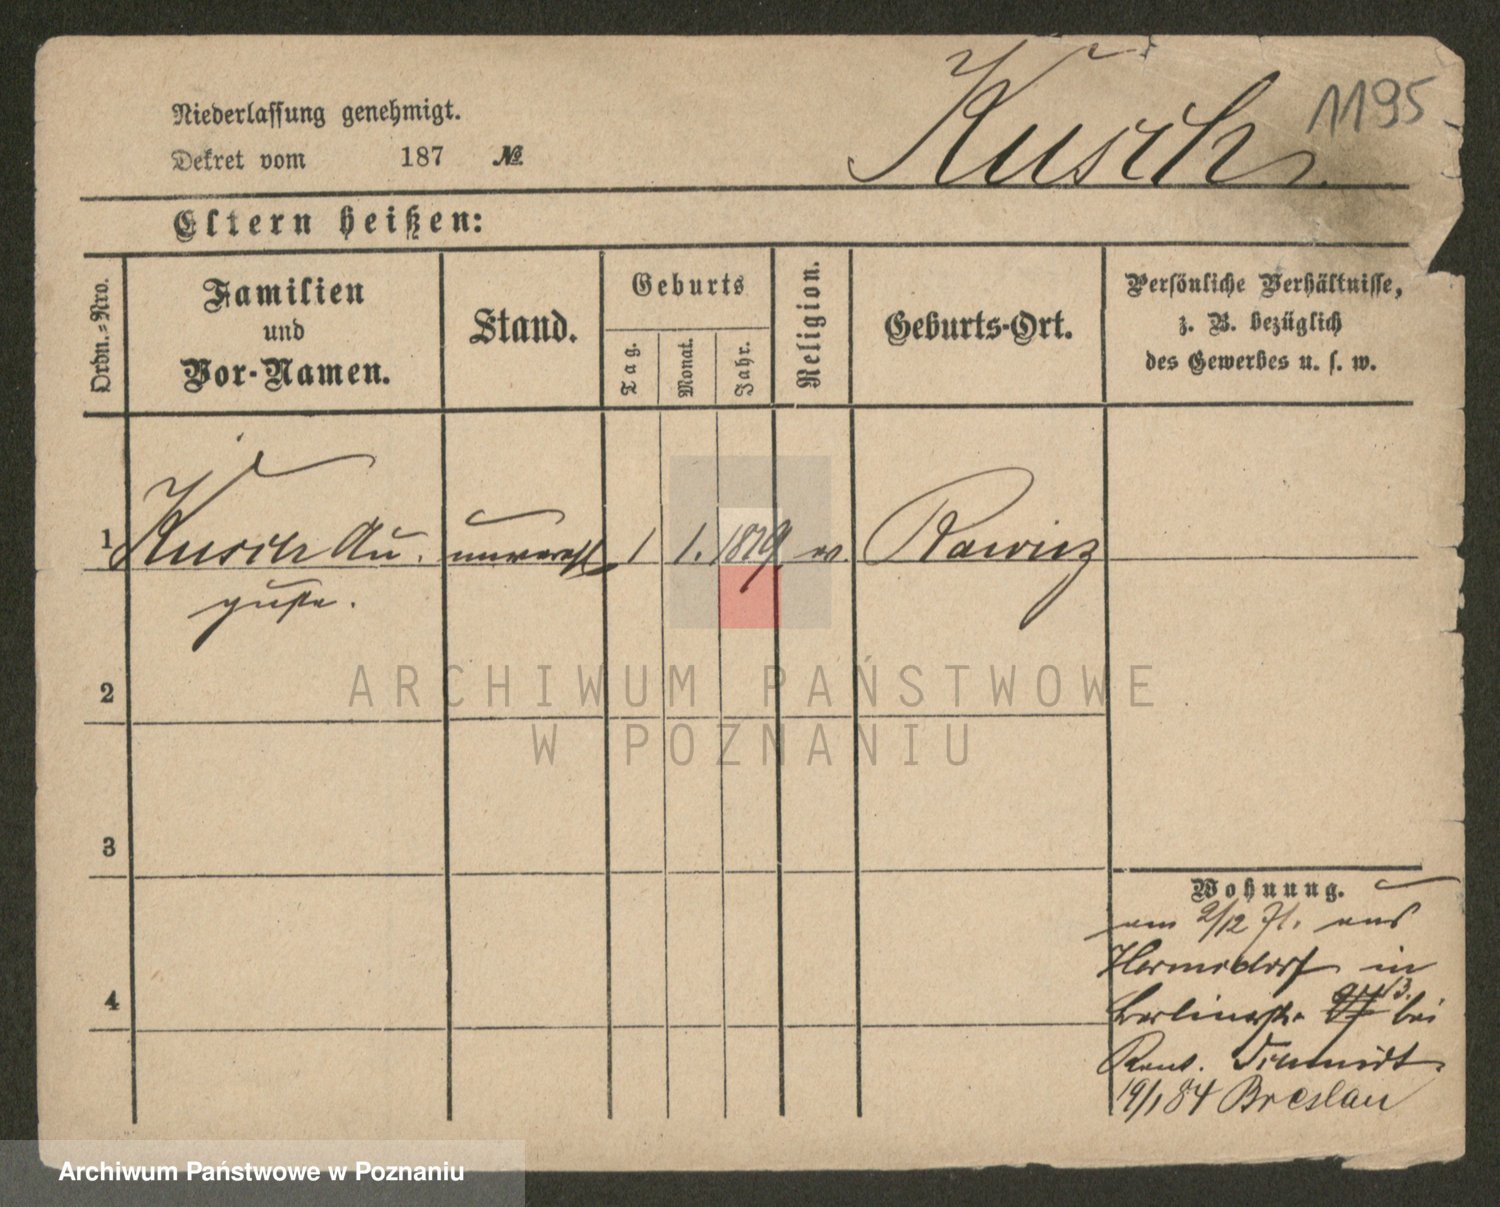 Kusch
1195
Niederlassung genehmigt.
Dekret vom 187 №
Eltern heißen:
Ordn.=Nro.
Familien
und
Vor-Namen.
Stand.
Geburts
Tag.
Monat.
Jahr.
Religion.
Geburts-Ort.
Persönliche Verhältnisse,
z. B. bezüglich
des Gewerbes u. s. w.
1 Kusch Au- unvereh 1 1. 1879 ev. Rawicz
guste.
2
3
4
Wohnung.
am 2/12 71. aus
Hermsdorf in
Berlinerstr. 13. bei
Schmidt
19/1 84 Breslau
ARCHIWUM PAŃSTWOWE
W POZNANIU
Archiwum Państwowe w Poznaniu